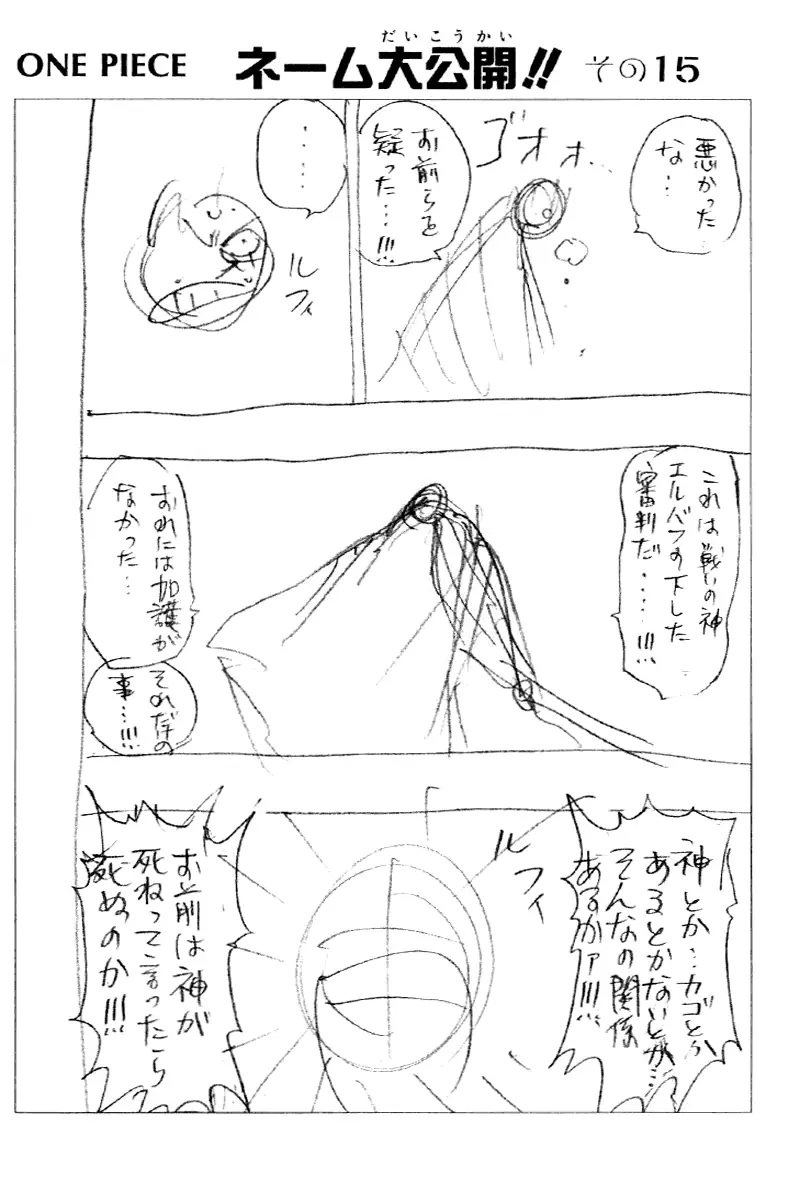 ONE PIECE
ネーム大公開!!
だいこうかい
その15
悪かった
な…
ゴオオ…
お前らを
疑った…!!!
‥‥‥
ルフィ
これは戦いの神
エルバフの下した
審判だ……!!!
おれには加護が
なかった…
それだけの
事…!!!
神とか…カゴとか
あるとかないとか…
そんなの関係
あるかァ!!!
ルフィ
お前は神が
死ねって言ったら
死ぬのか!!!